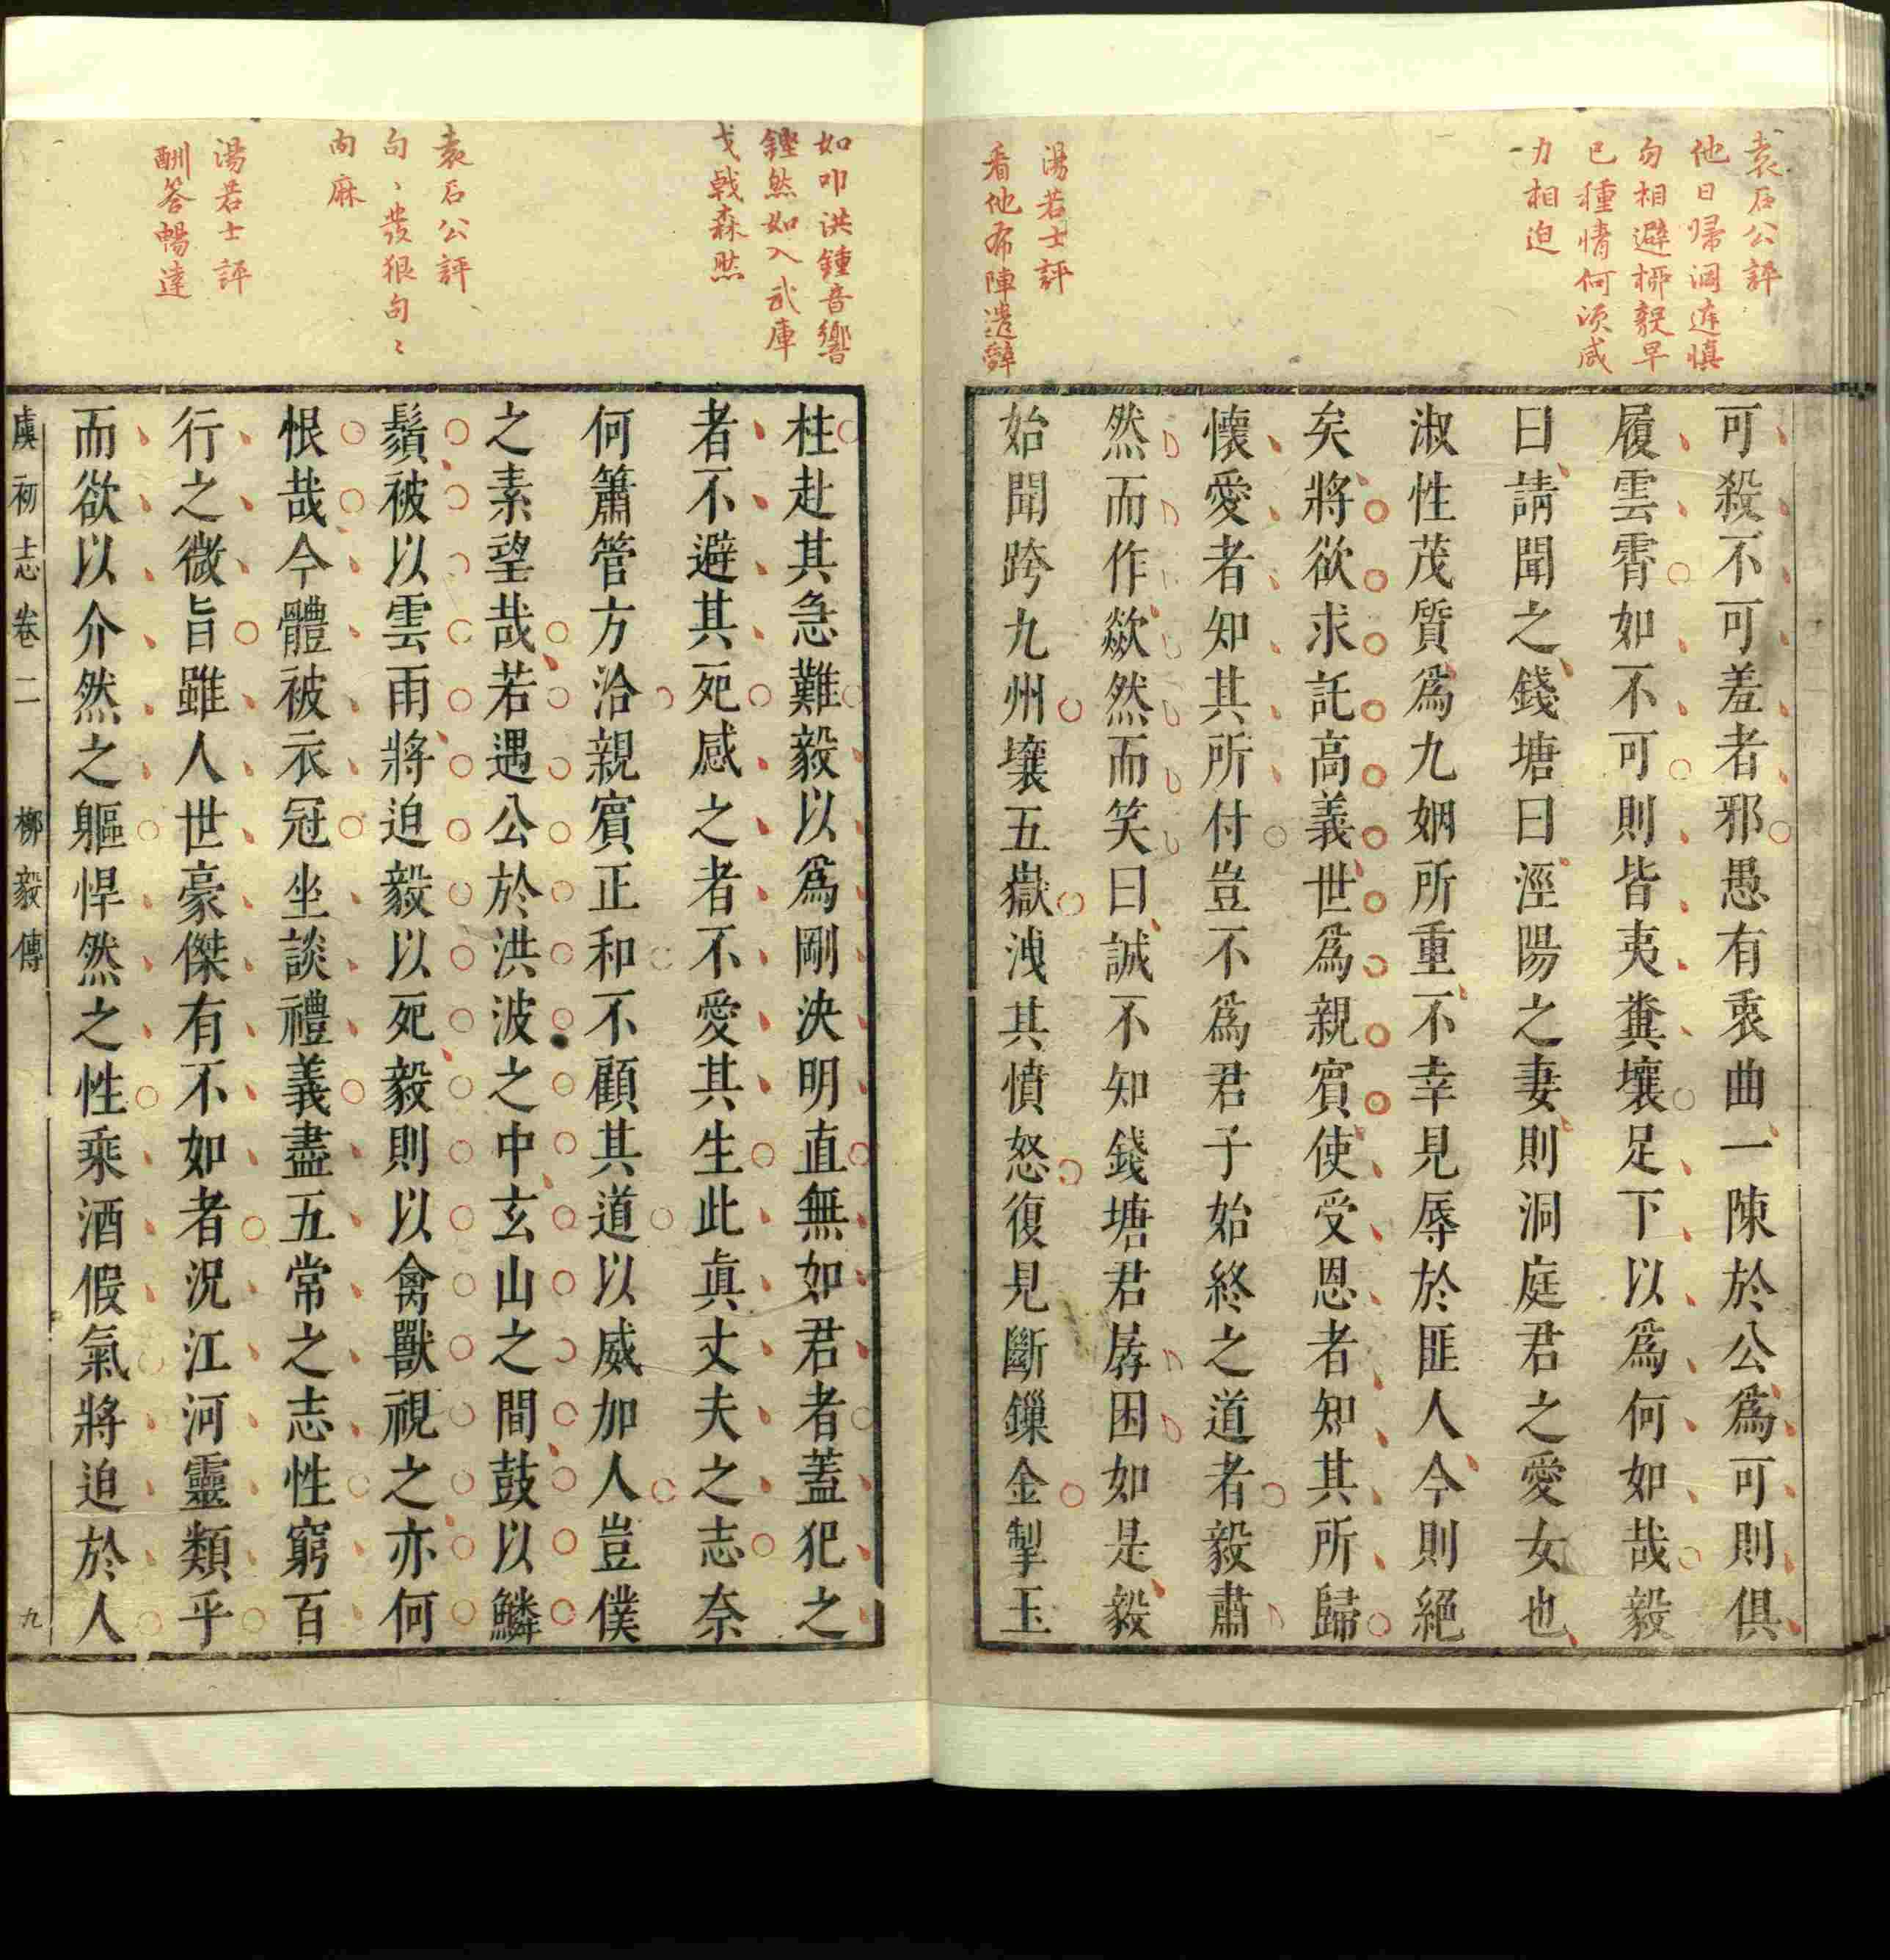 袁石公評
他日歸洞庭慎
勿相避柳毅早
已種情何須威
力相迫
湯若士評
看他布陣遣辭
可殺不可羞者邪愚有衷曲一陳於公爲可則俱
履雲霄如不可則皆夷糞壤足下以爲何如哉毅
曰請聞之錢塘曰涇陽之妻則洞庭君之愛女也
淑性茂質爲九姻所重不幸見辱於匪人今則絕
矣將欲求託高義世爲親賓使受恩者知其所歸
懷愛者知其所付豈不爲君子始終之道者毅肅
然而作歘然而笑曰誠不知錢塘君孱困如是毅
始聞跨九州壤五嶽洩其憤怒復見斷鏁金掣玉
如叩洪鍾音響
鏗然如入武庫
戈戟森然
袁石公評
句〻發狠句〻
肉麻
湯若士評
酬答暢達
柱赴其急難毅以爲剛決明直無如君者蓋犯之
者不避其死感之者不愛其生此眞丈夫之志奈
何簫管方洽親賓正和不顧其道以威加人豈僕
之素望哉若遇公於洪波之中玄山之間鼓以鱗
鬚被以雲雨將迫毅以死毅則以禽獸視之亦何
恨哉今體被衣冠坐談禮義盡五常之志性窮百
行之微旨雖人世豪傑有不如者況江河靈類乎
而欲以介然之軀悍然之性乘酒假氣將迫於人
虞初志卷二 柳毅傳 九